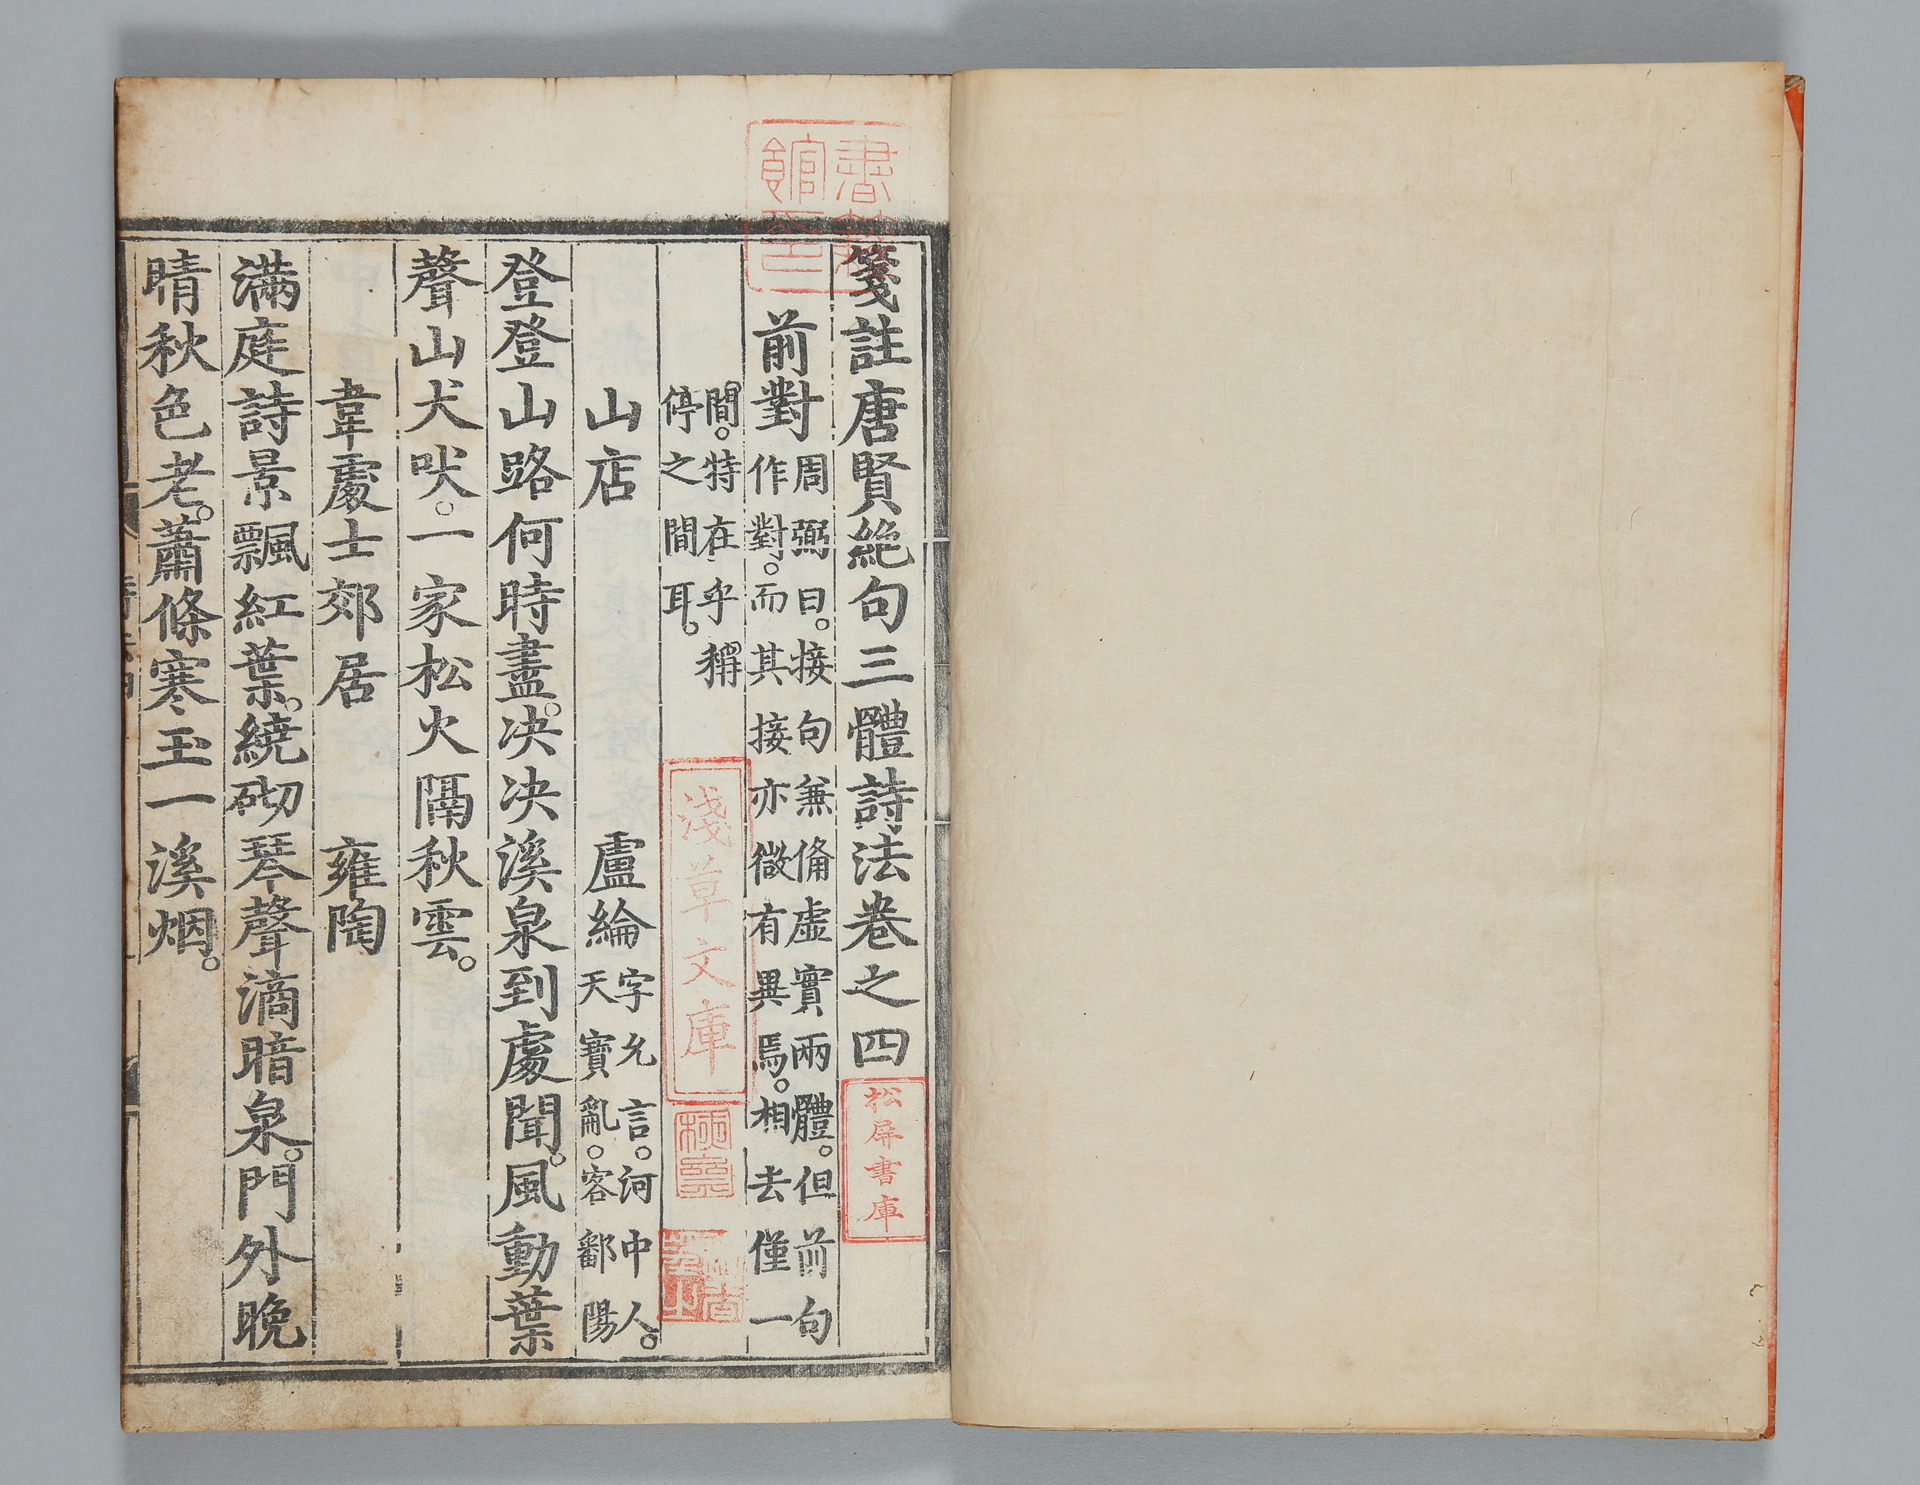 箋註唐賢絶句三體詩法卷之四
前對
周弼曰。接句兼俻虛實兩體。但前句
作對。而其接亦微有異焉。相去僅一
間。特在乎稱
停之間耳。
山店 盧綸
字允言。河中人。
天寶亂。客鄱陽
登登山路何時盡。决决溪泉到處聞。風動葉
聲山犬吠。一家松火隔秋雲。
韋處士郊居 雍陶
滿庭詩景飄紅葉。繞砌琴聲滴暗泉。門外晚
晴秋色老。蕭條寒玉一溪烟。
淺草文庫
松屏書庫